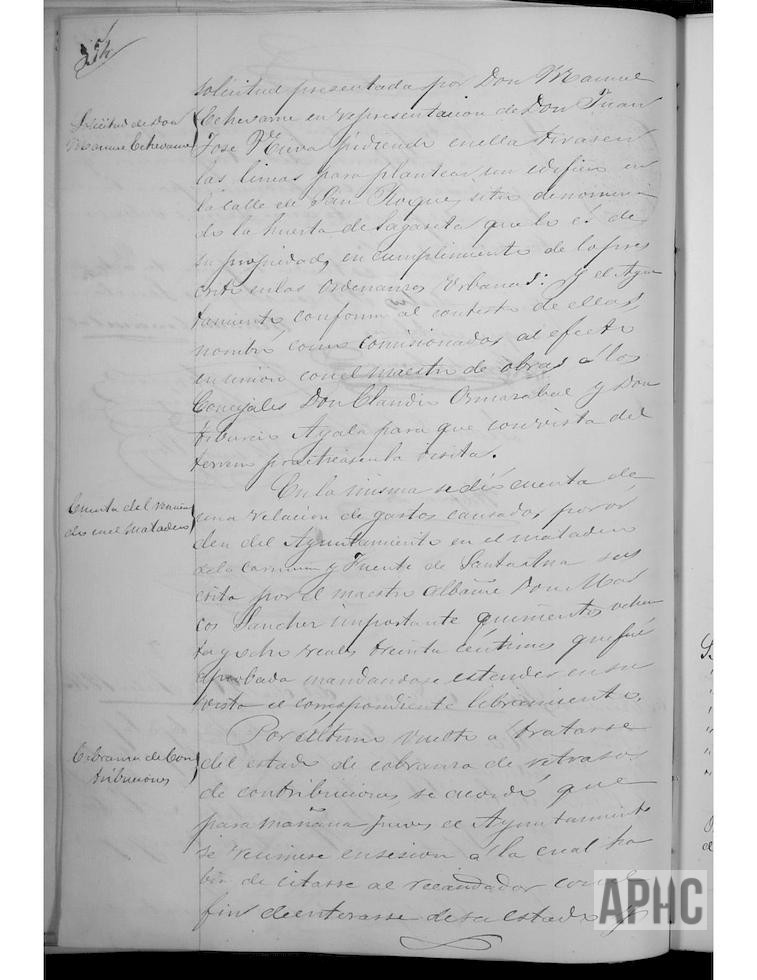 solicitud presentada por Don Manuel
Solicitud de Don
Manuel Echevarne
Echevarne en representacion de Don Juan
Jose Nueva pidiendo en ella tirasen
las lineas para plantear un edificio en
la calle de San Roque, sitio denomina
do la huerta de Sagaseta que lo es de
su propiedad, en cumplimiento de lo pres
crito en las Ordenanzas Urbanas: y el Ayun
tamiento, conforme al contesto de ellas,
nombró como comisionados al efecto
en union con el maestro de obras á los
Concejales Don Claudio Ormazabal y Don
Tiburcio Ayala para que con vista del
terreno practicasen la visita.
Cuenta del
dos en el Matadero
En la misma se dió cuenta de
una relacion de gastos causados por or
den del Ayuntamiento en el matadero
de la carnes y Fuente de Santa Ana sus
crita por el maestro Albañil Don Mar
cos Sancher importante quinientos ochen
ta y ocho reales treinta centimos que fué
aprobada mandandose estender en su
vista el correspondiente libramiento.
Por último vuelto a tratarse
Cobranza de Con
tribuciones
del estado de cobranza de retrasos
de contribuciones, se acordó que
para mañana jueves el Ayuntamiento
se reuniese en sesion á la cual ha
bia de citarse al recaudador con el
fin de enterarse de su estado y
APHC